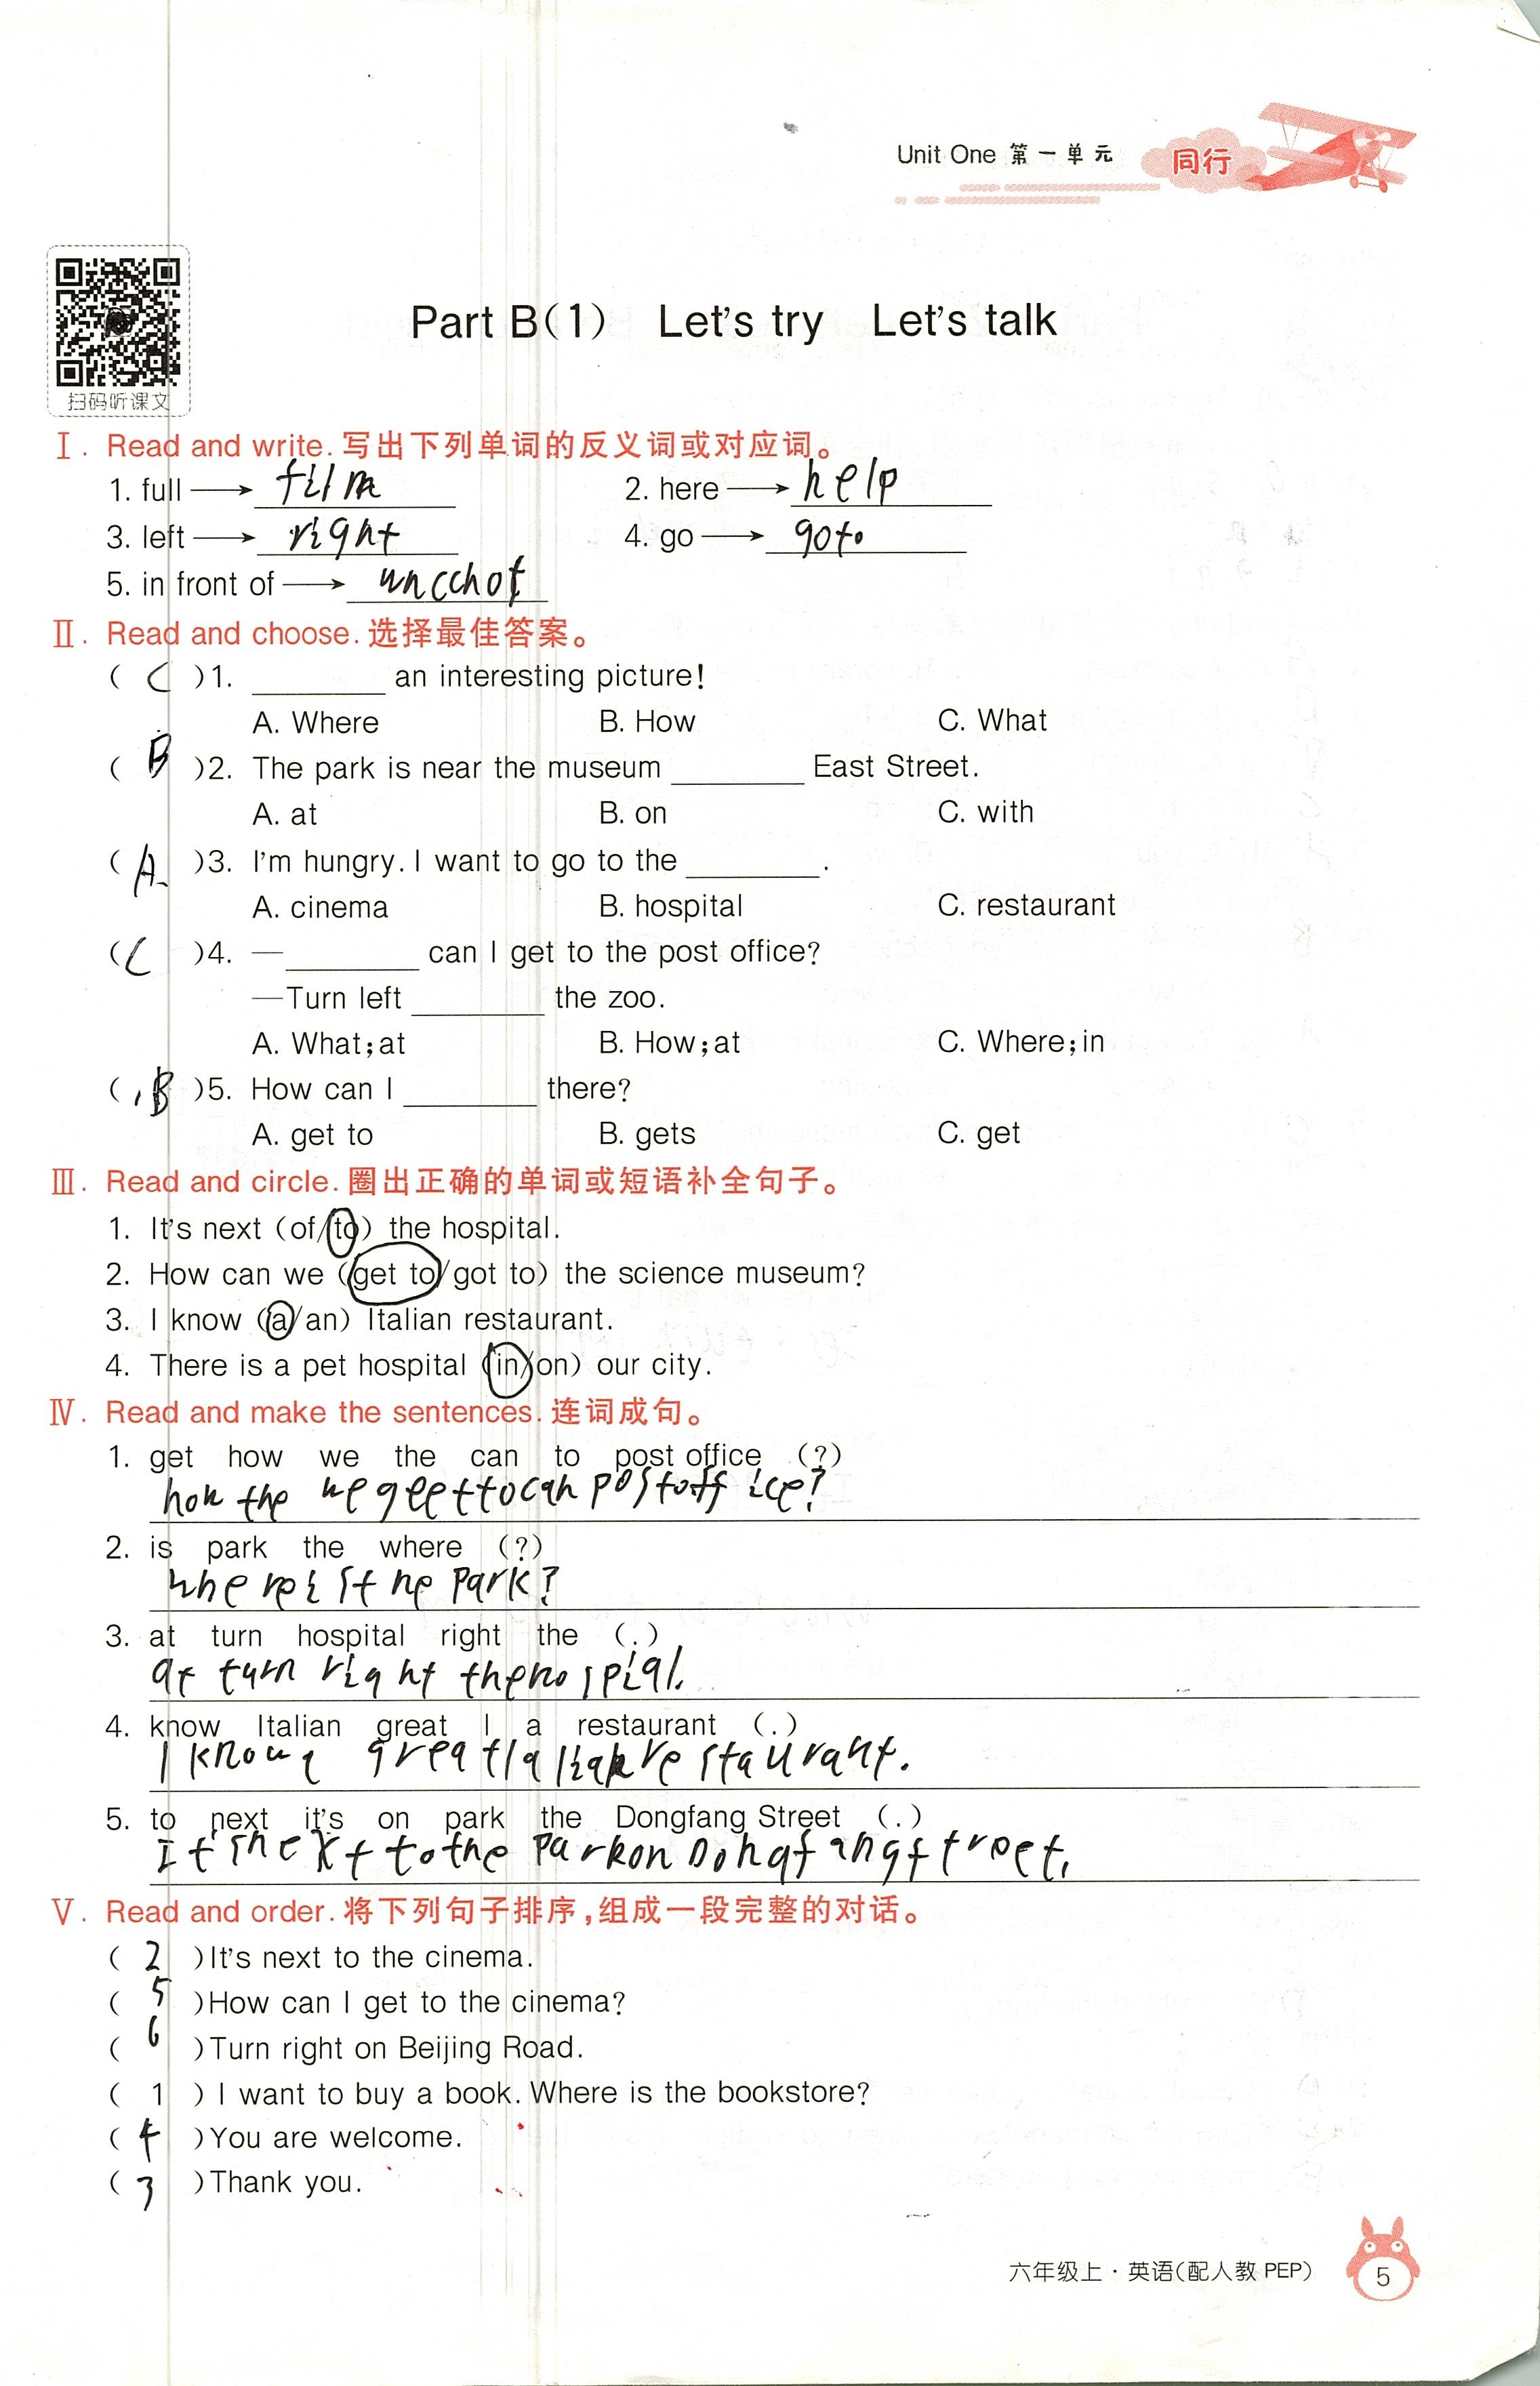 Unit One 第一单元 同行
扫码听课文
Part B(1) Let's try Let's talk
Ⅰ. Read and write. 写出下列单词的反义词或对应词。
1. full → film 2. here → help
3. left → right 4. go → goto
5. in front of →
Ⅱ. Read and choose. 选择最佳答案。
( C )1. ________ an interesting picture!
A. Where B. How C. What
( B )2. The park is near the museum ________ East Street.
A. at B. on C. with
( A )3. I'm hungry. I want to go to the ________.
A. cinema B. hospital C. restaurant
( C )4. —________ can I get to the post office?
—Turn left ________ the zoo.
A. What; at B. How; at C. Where; in
( B )5. How can I ________ there?
A. get to B. gets C. get
Ⅲ. Read and circle. 圈出正确的单词或短语补全句子。
1. It's next (of/to) the hospital.
2. How can we (get to/got to) the science museum?
3. I know (a/an) Italian restaurant.
4. There is a pet hospital (in/on) our city.
Ⅳ. Read and make the sentences. 连词成句。
1. get how we the can to post office (?)
how the we geet to can post office?
2. is park the where (?)
where is the park?
3. at turn hospital right the (.)
at turn right the hospial.
4. know Italian great I a restaurant (.)
I know a great restaurant.
5. to next it's on park the Dongfang Street (.)
It's next to the park on Dongfang street.
Ⅴ. Read and order. 将下列句子排序,组成一段完整的对话。
( 2 )It's next to the cinema.
( 5 )How can I get to the cinema?
( 6 )Turn right on Beijing Road.
( 1 ) I want to buy a book. Where is the bookstore?
( 4 )You are welcome.
( 3 )Thank you.
六年级上·英语(配人教 PEP) 5